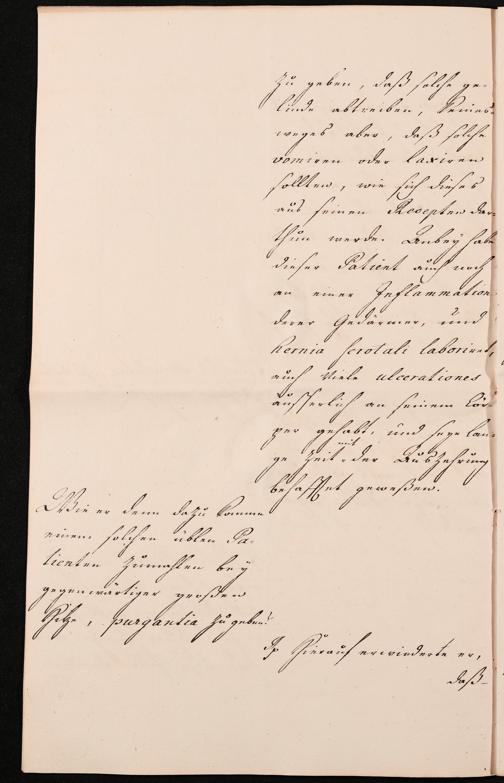 zu geben, daß solche ge-
linde abtreiben, keines-
weges aber, daß solche
vomiren oder laxiren
sollten, wie sich dieses
aus seinen Recepten dar-
thun werde. Anbey habe
dieser Patient auch noch
an einer Inflammation
derer Gedärmer, und
hernia scrotali laborieret,
auch viele ulcerationes
äusserlich an seinem Cör-
per gehabt, und seye lan-
ge Zeit mit der Auszehrung
behafftet geweßen.
Wie er denn dazu komme
einem solchen üblen Pa-
tienten zumahlen bey
gegenwärtiger großen
Hitze, purgantia zu geben?
Hierauf erwiederte er,
daß-